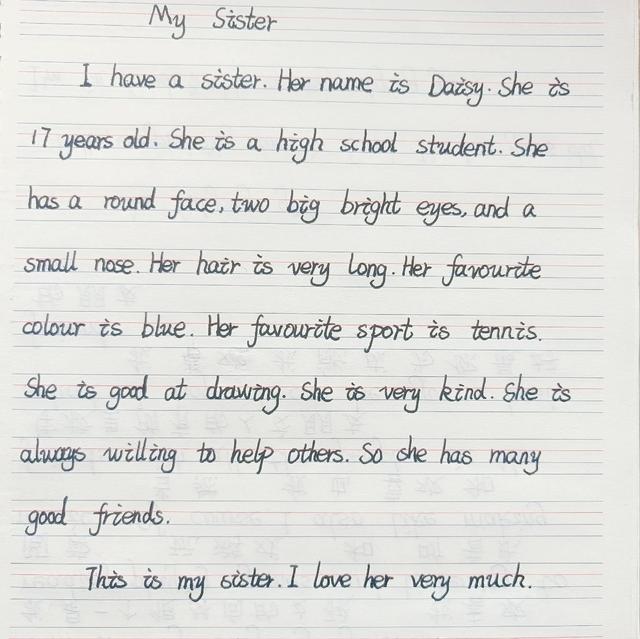 My Sister
I have a sister. Her name is Daisy. She is
17 years old. She is a high school student. She
has a round face, two big bright eyes, and a
small nose. Her hair is very long. Her favourite
colour is blue. Her favourite sport is tennis.
She is good at drawing. She is very kind. She is
always willing to help others. So she has many
good friends.
This is my sister. I love her very much.